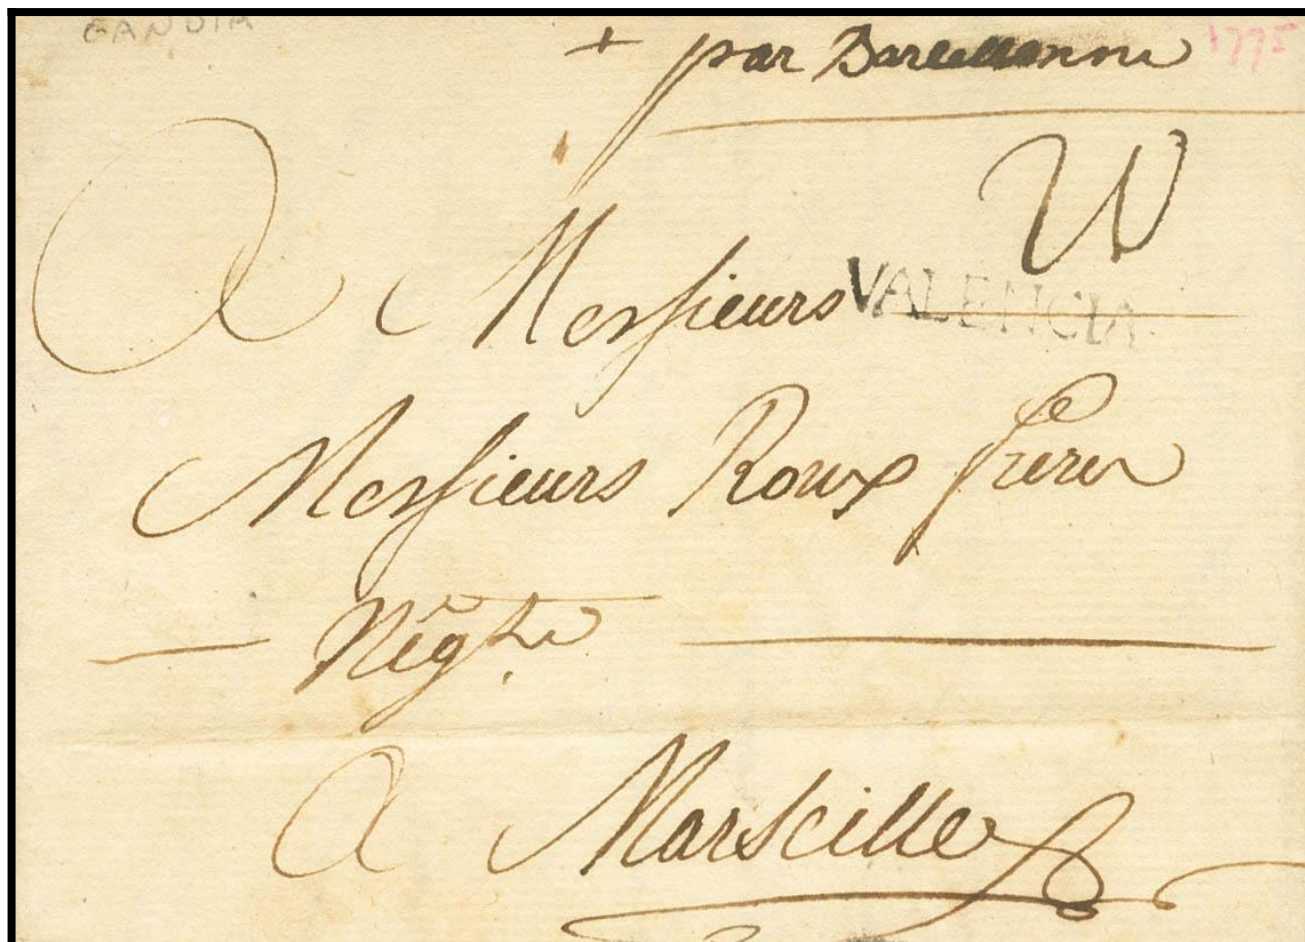 GANDIA 1775
+ par Barcellonne
A Messieurs VALENCIA
Messieurs Roux freres
Negts
A Marseille